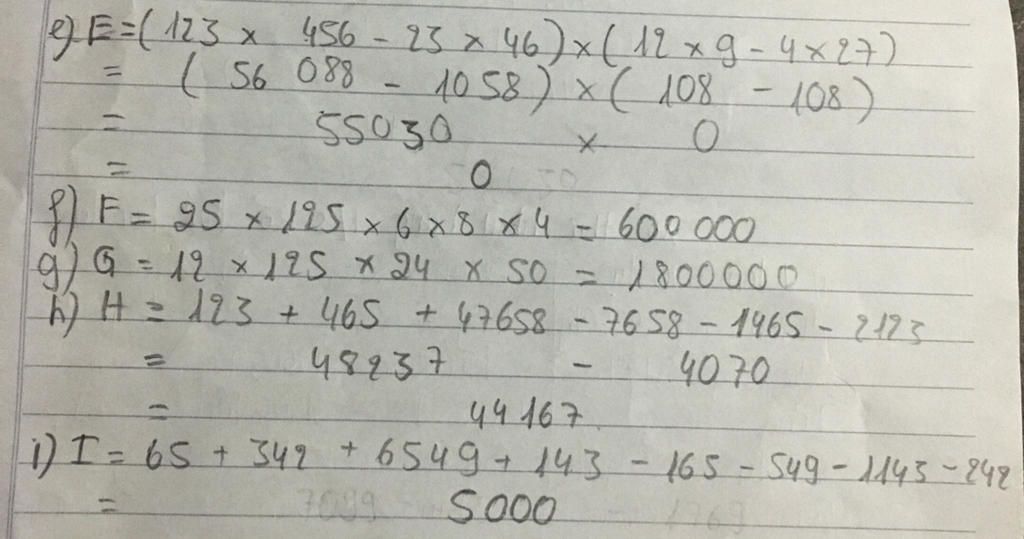 e) E = (123 × 456 - 23 × 46) × (12 × 9 - 4 × 27)
= (56 088 - 1058) × (108 - 108)
= 55030 × 0
= 0
f) F = 25 × 125 × 6 × 8 × 4 = 600 000
g) G = 12 × 125 × 24 × 50 = 1800000
h) H = 123 + 465 + 47658 - 7658 - 1465 - 2123
= 48237 - 4070
= 44167
i) I = 65 + 342 + 6549 + 143 - 165 - 549 - 1143 - 242
= 5000